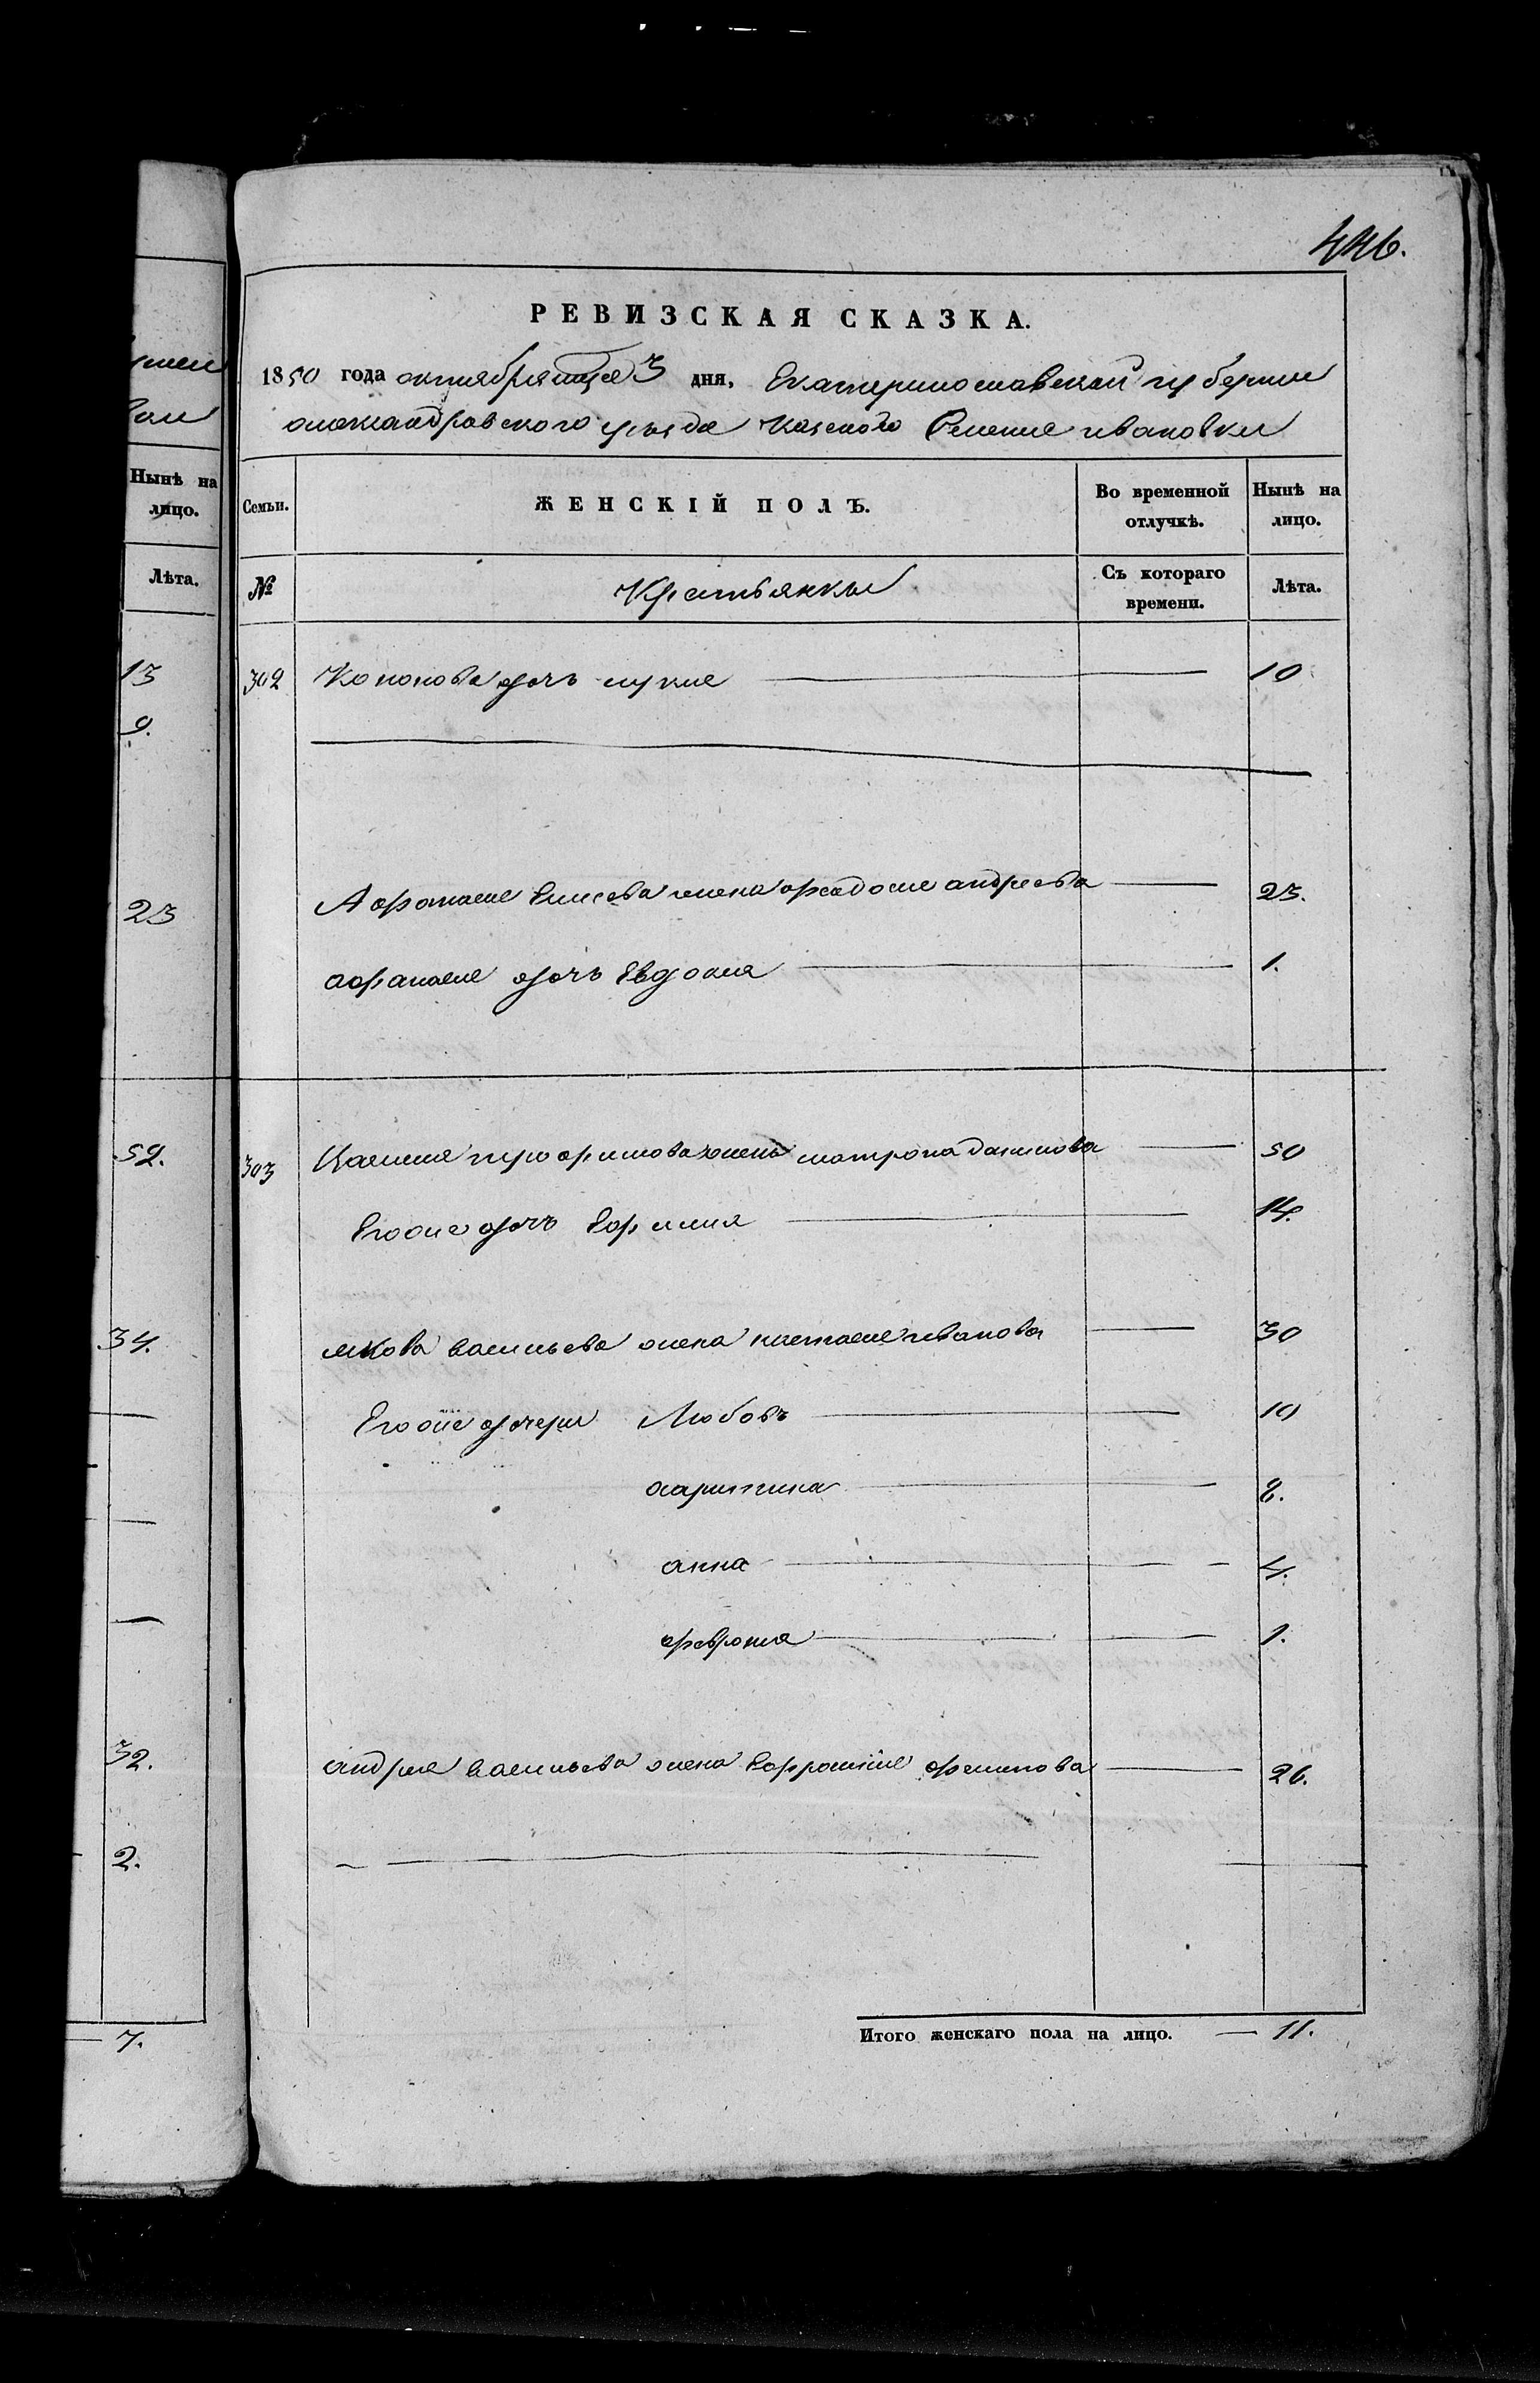 446.
РЕВИЗСКАЯ СКАЗКА.
1850 года октября месяца 3 дня, Екатеринославской губернии
александровского уезда казеного Селения ивановки
Нынѣ на
лицо.
Лѣта.
13
9.
23
52.
34.
32.
2.
7.
Семьи. ЖЕНСКІЙ ПОЛЪ. Во временной отлучкѣ. Нынѣ на лицо.
№ Крестьянки Съ котораго времени. Лѣта.
302 Кононова дочь 10
Афанасия Елисеева жена федосия андреева 23.
афанасия дочь Евдокия 1.
303 Василия трофимова жена матрона данилова 50
Егоже дочь Ефимия 14.
якова васильева жена настасия иванова 30
Егоже дочери Любовь 10
харитина 8.
анна 4.
феврония 1.
андрея васильева жена Ефросиния филипова 26.
Итого женскаго пола на лицо. — 11.